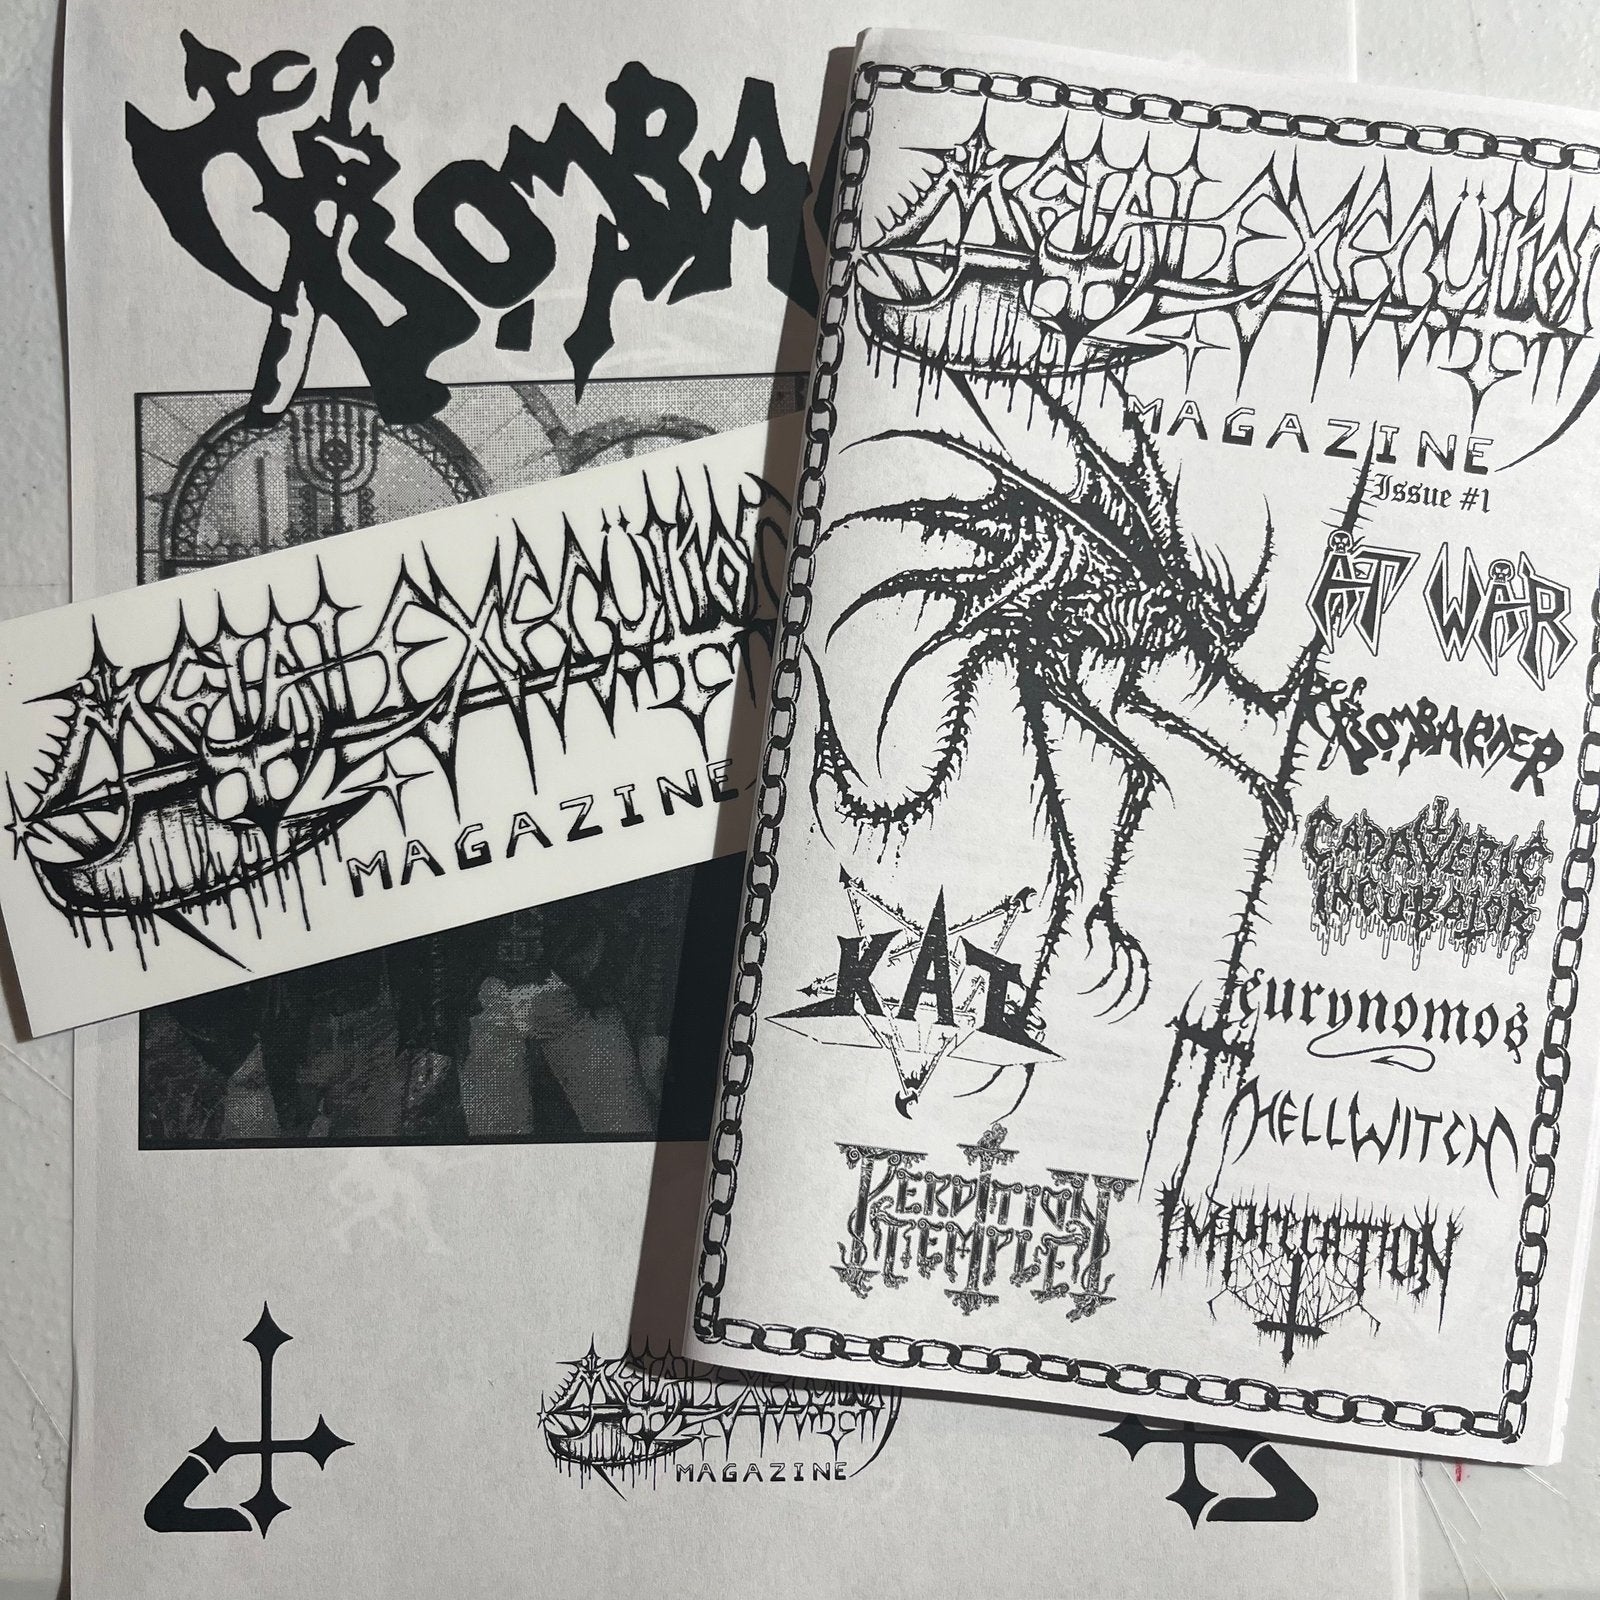 BOMBA
METAL EXECÜTION
MAGAZINE
METAL EXECÜTION
MAGAZINE
Issue #1
ÄT WÄR
BOMBARDER
CADAVERIC
INCUBATOR
KAT
eurynomos
HELLWITCH
PERDITION
TEMPLE
IMPRECATION
METAL EXECÜTION
MAGAZINE